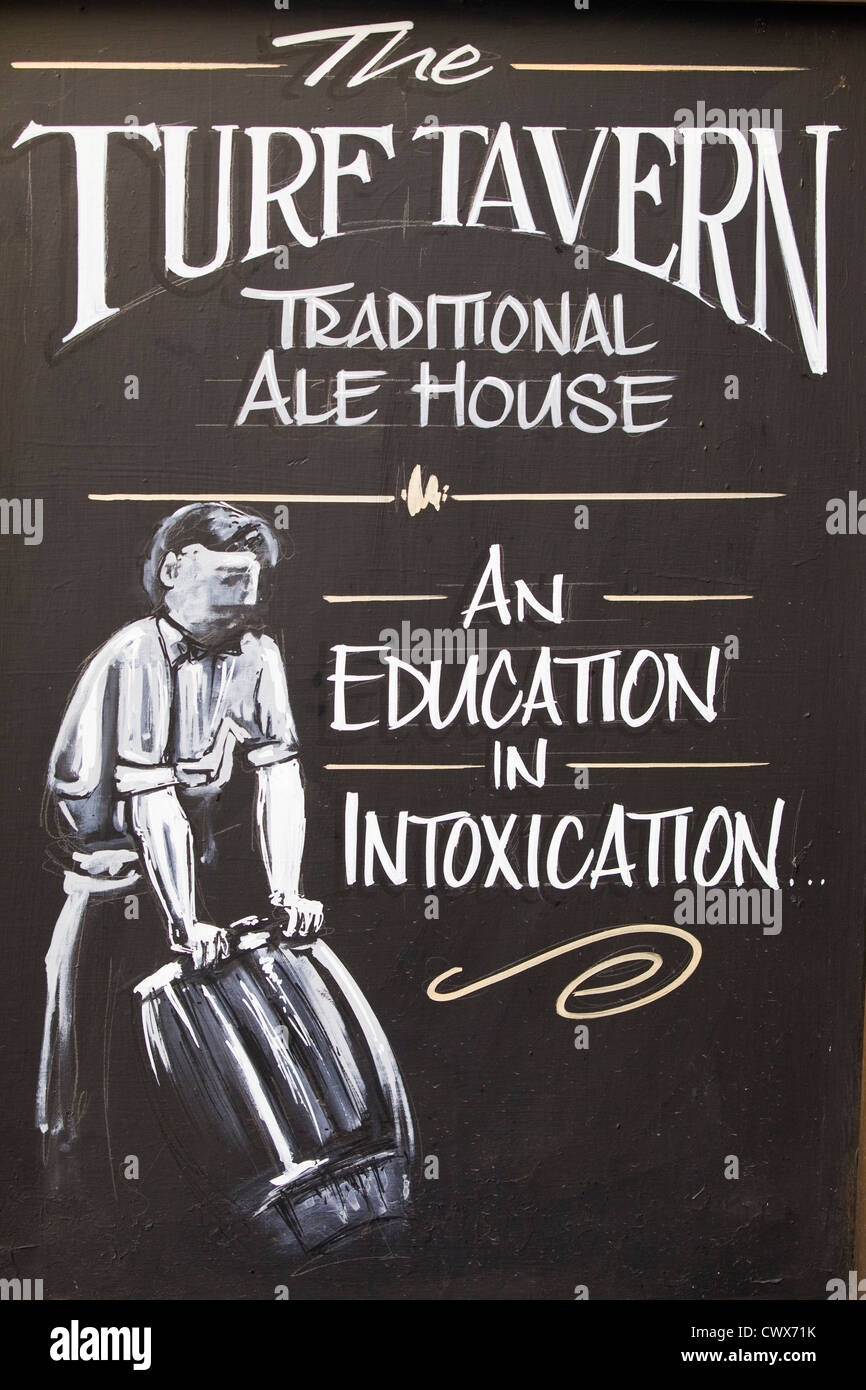 The
TURF TAVERN
TRADITIONAL
ALE HOUSE
AN
EDUCATION
IN
INTOXICATION...
alamy
alamy
Image ID: CWX71K
www.alamy.com